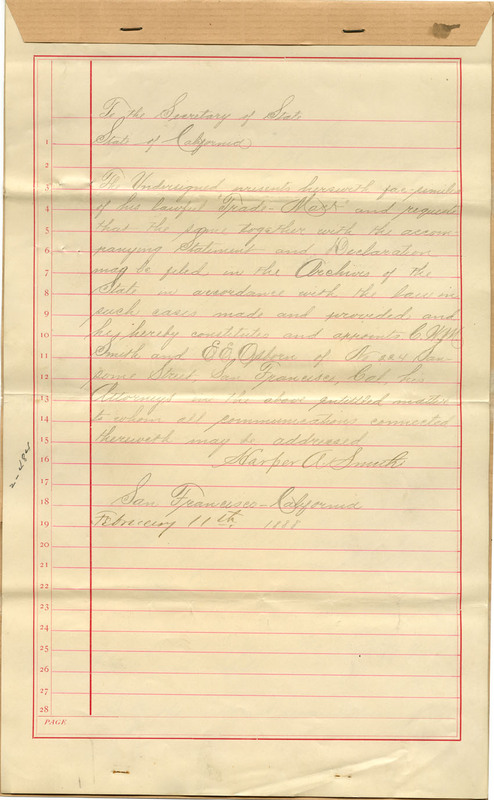 To the Secretary of State
1 State of California
2
3 The Undersigned presents herewith fac-similes
4 of his lawful "Trade-Mark" and requests
5 that the same together with the accom-
6 panying Statement and Declaration
7 may be filed in the Archives of the
8 State in accordance with the laws in
9 such cases made and provided and
10 he hereby constitutes and appoints C. W. M.
11 Smith and E. E. Osborn of No 224 San-
12 some Street San Francisco, Cal, his
13 Attorneys in the above entitled matter
14 to whom all communications connected
15 therewith may be addressed
16 Harper A. Smith
17
18 San Francisco-California
19 February 11th 1888
20
21
22
23
24
25
26
27
28
PAGE
2-484